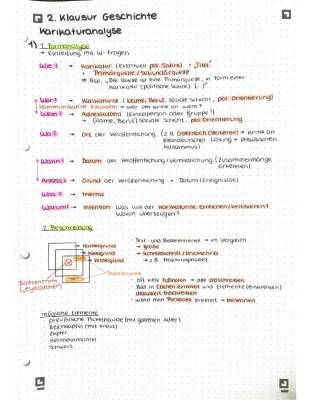 2. Klausur Geschichte
Karikaturanalyse
1) 1. Formanalyse
→ Einleitung mit W-Fragen
Wie? → Karikatur (eventuell pol. Satire) + „Titel"
+ Primärquelle / Sekundärquelle
→ Bsp. „Die Quelle ist eine Primärquelle, in Form einer
Karikatur (politische Satire) [...]"
Wer? → Karikaturist (Name, Beruf, soziale Schicht, pol. Orientierung)
Kommunikative Situation → Wer übt Kritik an wem?
Wem? → Adressat(en) (Einzelperson oder Gruppe!)
→ (Name, Beruf) soziale Schicht, pol. Orientierung
Wo? → Ort der Veröffentlichung (z.B. Österreich → Kritik an
kleindeutscher Lösung + preußischen
Militarismus)
Wann? → Datum der Veröffentlichung/Verbreitung (Zusammenhänge
erkennen)
Anlass? → Grund der Veröffentlichung + Datum (Ereignisse)
Was? → Thema
Warum? → Intention: Was will der Karikaturist erreichen/kritisieren?
Wovon überzeugen?
2. Beschreibung
- Text- und Bildelemente → im Vergleich
Hintergrund → Größe
→ Schriftbild/Druckschrift
Vordergrund
Bildzentrum
- oft viele Fußnoten → alle abschreiben
- Bild in Ebenen einteilen und Elemente
detailliert beschreiben
- wenn man Personen erkennt → benennen
mögliche Elemente
- preußische Pickelhaube (mit goldenem Adler)
- Reichsapfel (mit Kreuz)
- Zepter
- Hermelinmantel
- Schwert